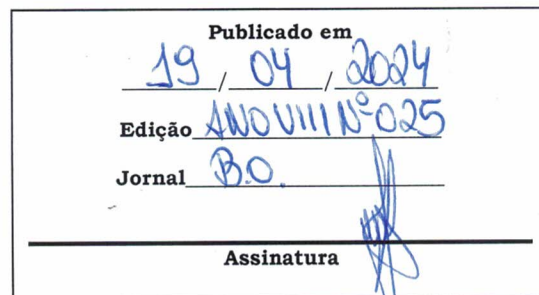 Publicado em
19 / 04 / 2024
Edição ANO VIII Nº 025
Jornal B.O.
Assinatura